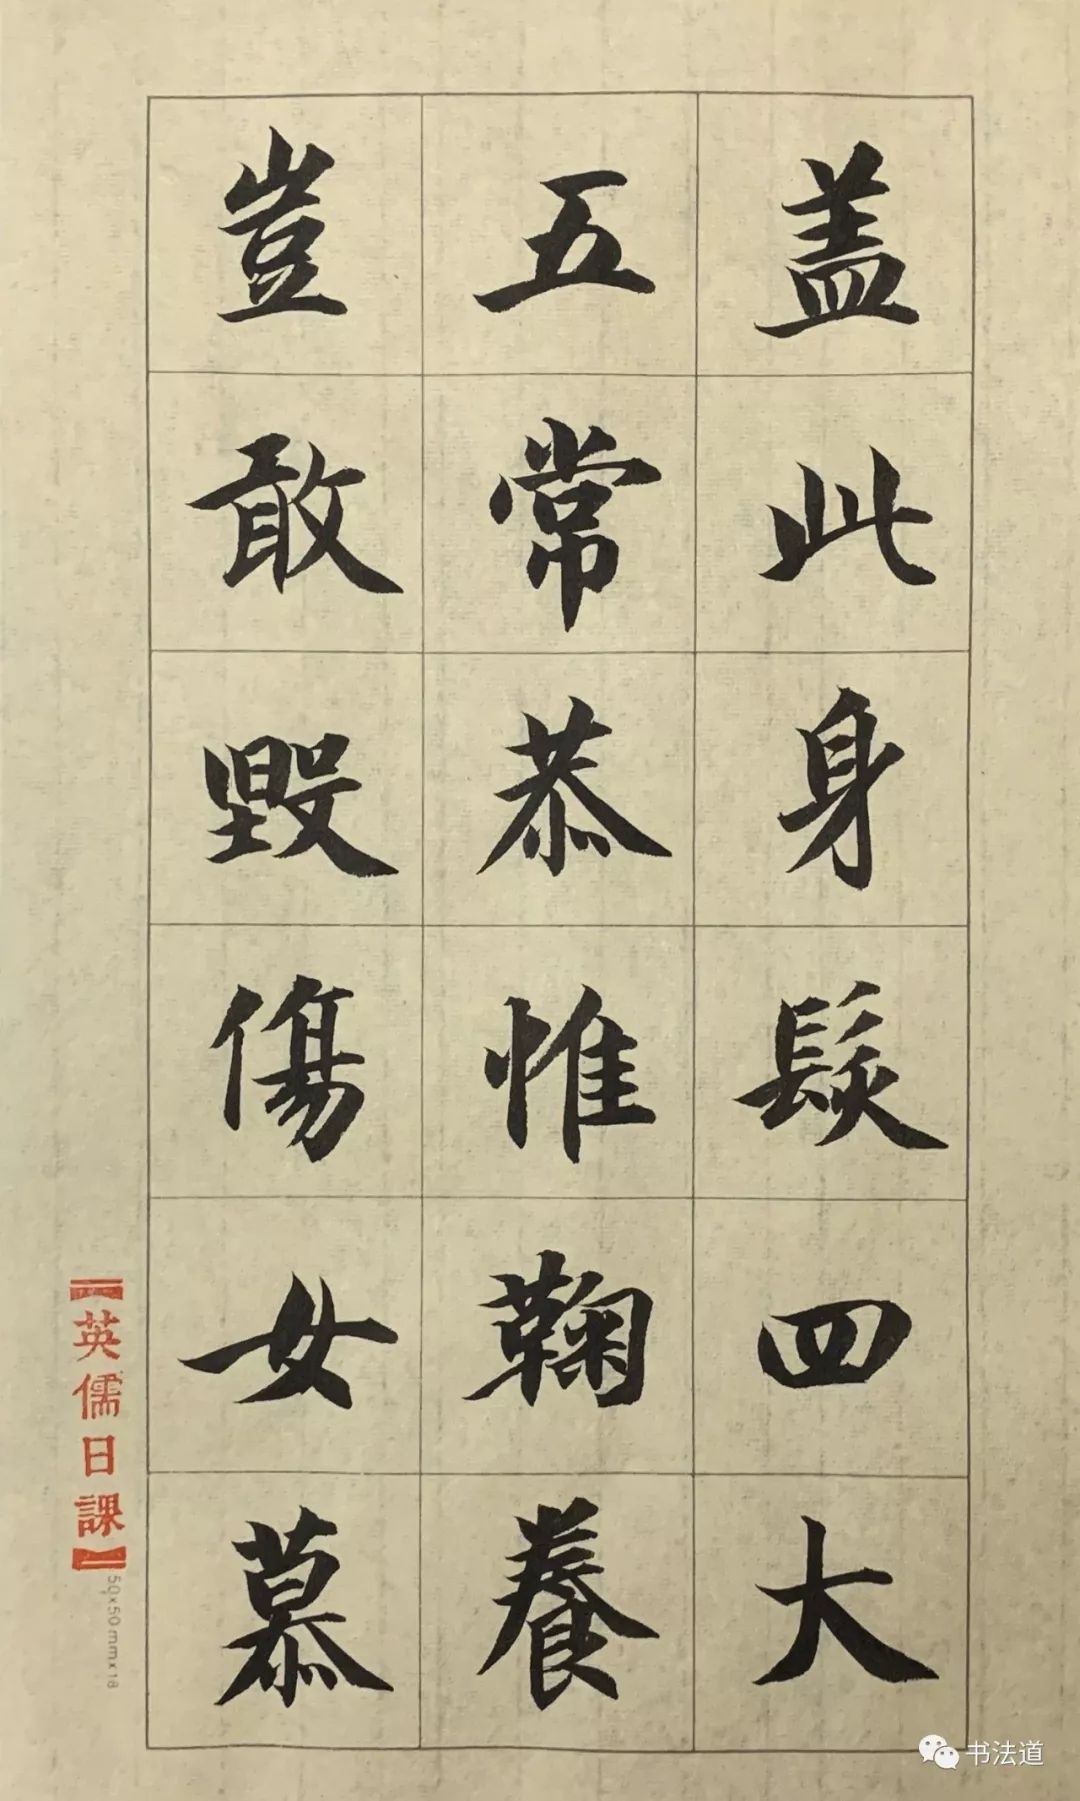 盖此身髮四大
五常恭惟鞠養
豈敢毀傷女慕
【英儒日課】
50×50mm×18
书法道